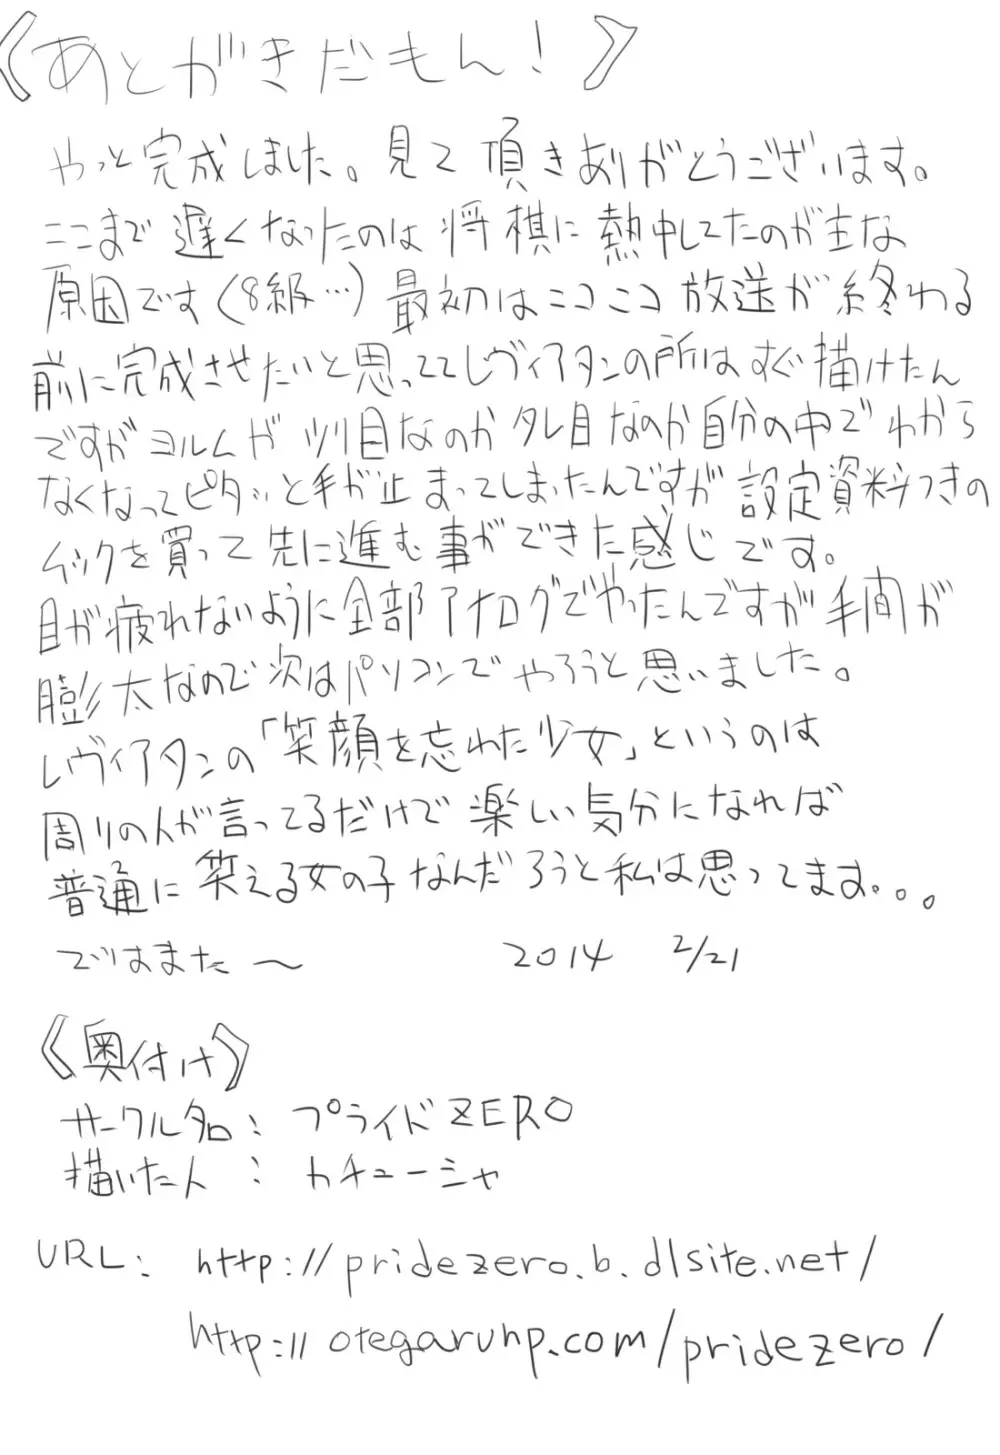 《あとがきだもん!》
やっと完成しました。見て頂きありがとうございます。
ここまで遅くなったのは将棋に熱中してたのが主な
原因です(8級…)最初はニコニコ放送が終わる
前に完成させたいと思っててレヴィアタンの所はすぐ描けたん
ですがヨルムがツリ目なのかタレ目なのか自分の中でわから
なくなってピタッと手が止まってしまったんですが設定資料つきの
ムックを買って先に進む事ができた感じです。
目が疲れないように全部アナログでやったんですが手間が
膨大なので次はパソコンでやろうと思いました。
レヴィアタンの「笑顔を忘れた少女」というのは
周りの人が言ってるだけで楽しい気分になれば
普通に笑える女の子なんだろうと私は思ってます。。。
ではまた〜 2014 2/21
《奥付け》
サークル名: プライドZERO
描いた人: カチューシャ
URL: http://pridezero.b.dlsite.net/
http://otegaruhp.com/pridezero/